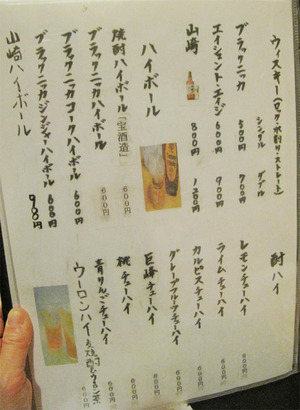 ウィスキー（ロック・水割り・ストレート）
シングル　ダブル
ブラックニカ　500円　700円
エイシェントエイジ　600円　900円
山崎　800円　1200円
ハイボール
焼酎ハイボール「宝酒造」　600円
ブラックニッカハイボール　600円
ブラックニッカコークハイボール　600円
ブラックニッカジンジャーハイボール　600円
山崎ハイボール　900円
酎ハイ
レモンチューハイ　600円
ライムチューハイ　600円
カルピスチューハイ　600円
グレープフルーツチューハイ　600円
巨峰チューハイ　600円
桃チューハイ　600円
青りんごチューハイ　600円
ウーロンハイ 麦焼酎&ウーロン茶　600円